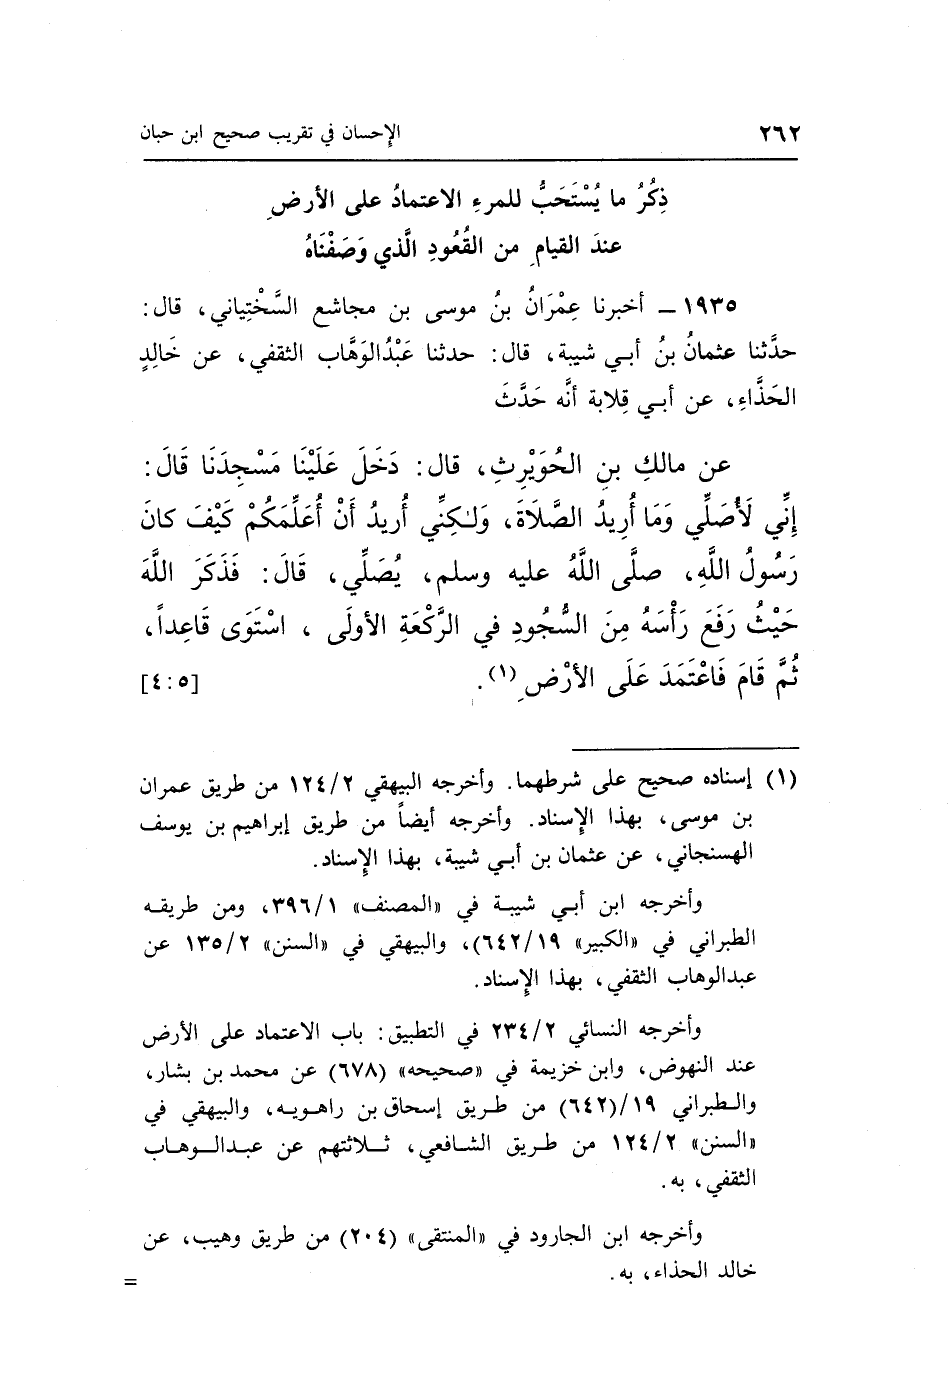 ٢٦٢ الإحسان في تقريب صحيح ابن حبان
ذِكْرُ ما يُسْتَحَبُّ للمرءِ الاعتمادُ على الأرضِ
عندَ القيامِ من القُعُودِ الَّذي وَصَفْنَاهُ
١٩٣٥ ــ أخبرنا عِمْرَانُ بنُ موسى بن مجاشع السَّخْتِياني، قال:
حدَّثنا عثمانُ بنُ أبـي شيبة، قال: حدثنا عَبْدُالوَهَّاب الثقفي، عن خَالِدٍ
الحَذَّاءِ، عن أبـي قِلابة أنَّه حَدَّثَ
عن مالكِ بنِ الحُوَيْرِثِ، قال: دَخَلَ عَلَيْنَا مَسْجِدَنَا قَالَ:
إِنِّي لَأُصَلِّي وَمَا أُرِيدُ الصَّلَاةَ، وَلـٰكِنِّي أُرِيدُ أَنْ أُعَلِّمَكُمْ كَيْفَ كانَ
رَسُولُ اللَّهِ، صلَّى اللَّهُ عليه وسلم، يُصَلِّي، قَالَ: فَذَكَرَ اللَّهَ
حَيْثُ رَفَعَ رَأْسَهُ مِنَ السُّجُودِ في الرَّكْعَةِ الأولَى ، اسْتَوَى قَاعِداً،
ثُمَّ قَامَ فَاعْتَمَدَ عَلَى الأرْضِ (١). [٤:٥]
(١) إسناده صحيح على شرطهما. وأخرجه البيهقي ١٢٤/٢ من طريق عمران
بن موسى، بهذا الإسناد. وأخرجه أيضاً من طريق إبراهيم بن يوسف
الهسنجاني، عن عثمان بن أبـي شيبة، بهذا الإسناد.
وأخرجه ابن أبـي شيبـة في «المصنف» ٣٩٦/١، ومن طريقـه
الطبراني في «الكبير» ٦٤٢/١٩)، والبيهقي في «السنن» ١٣٥/٢ عن
عبدالوهاب الثقفي، بهذا الإسناد.
وأخرجه النسائي ٢٣٤/٢ في التطبيق: باب الاعتماد على الأرض
عند النهوض، وابن خزيمة في «صحيحه» (٦٧٨) عن محمد بن بشار،
والـطبراني ١٩/(٦٤٢) من طـريق إسحاق بن راهـويـه، والبيهقي في
«السنن» ١٢٤/٢ من طـريق الشـافعي، ثـلاثتهم عن عبـدالـوهـاب
الثقفي، به.
وأخرجه ابن الجارود في «المنتقى» (٢٠٤) من طريق وهيب، عن
خالد الحذاء، به.
=